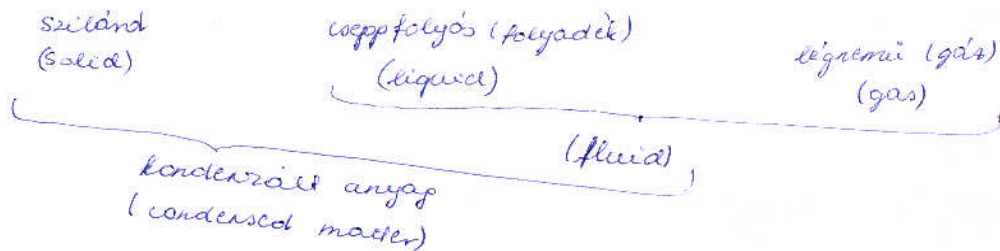 szilárd
(solid)
cseppfolyós (folyadék)
(liquid)
légnemű (gáz)
(gas)
(fluid)
kondenzált anyag
(condensed matter)